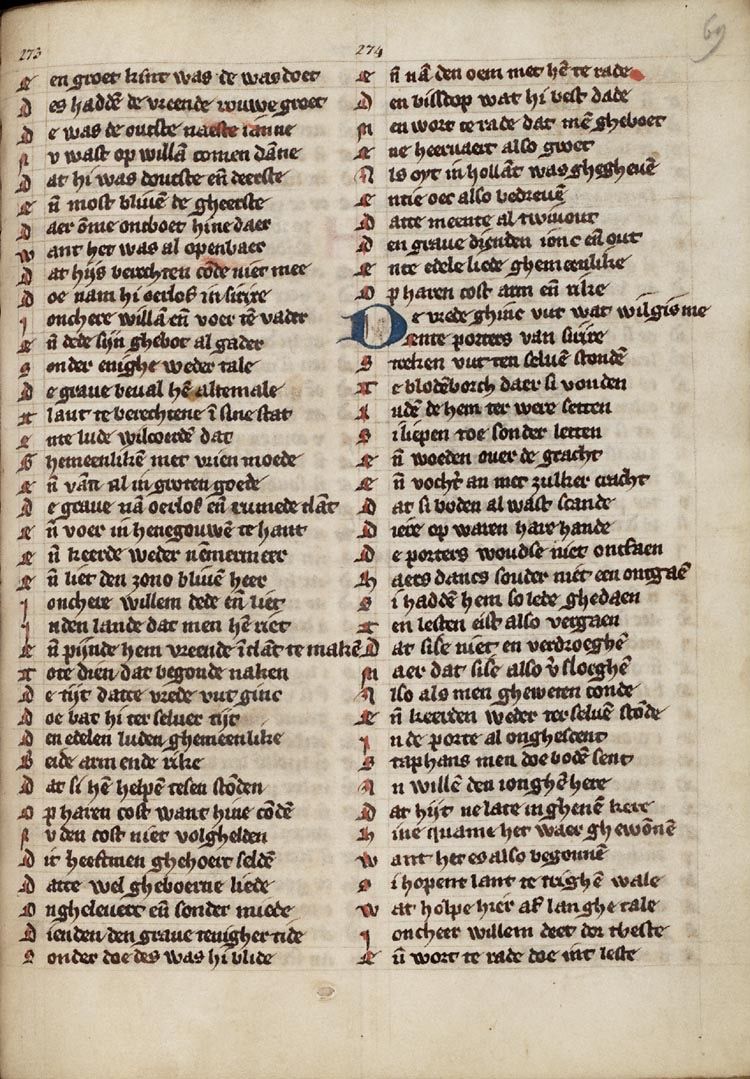 273
En groet kint was de was doet
Des hadde de vreende rouwe groet
De was de outste naeste ianne
Nu wast op willā comen dāne
Dat hi was doutste en̄ deerste
En̄ most bliuē de gheerste
Daer ōme ontboet hine daer
Want het was al openbaer
Dat hijs berechten cōde niet mee
Doe nam hi oerlof in sirixe
Jonchere willā en̄ voer te vader
En̄ dede sijn ghebot al gader
Sonder enighe weder tale
De graue beual hē altemale
Tlant te berechtene ī sine stat
Ente lude wilcoerdē dat
Ghemeenlikē met vrien moede
En̄ vātē al in groten goede
De graue nā oerlof en̄ rumede tlāt
En̄ voer in henegouwē te hant
En̄ keerde weder nēmermeer
En̄ liet den zono bliuē heer
Jonchere willem dede en̄ liet
Jnden lande dat men hē riet
En̄ pijnde hem vreende ī clāt te makē
Tote dien dat begonde naken
De tijt datte vrede vut ginc
Doe bat hi ter seluer tijt
Den edelen luden ghemeenlike
Beide arm ende rike
Dat si hē helpē tesen stōden
Op haren cost want hine cōdē
Nv den cost niet volghelden
Dit heeftmen ghehoert seldē
Datte wel gheboerne liede
Ongheleuert en̄ sonder miede
Dienden den graue teuigher tide
Sonder doe des was hi blide
274
69
En̄ nā den oem met hē te rade
Den bisscop wat hi best dade
Men wort te rade dat mē gheboet
Ene heeruaert also groet
Als oyt in hollāt was ghegheuē
Entie oec also bedreuē
Datte meente al twivout
Den graue dienden ionc en̄ out
Ente edele liede ghemeenlike
Op haren cost arm en̄ rike
De vrede ghinc vut wat wilgis me
Dente porters van sirixe
Trecken vut ten seluē stondē
Te blodēborch daer si vonden
Ludē de hem ter were setten
Si liepen toe sonder letten
En̄ woeden ouer de gracht
En̄ vochtē an met zulker cracht
Dat si boden al wast scande
Diere op waren hare hande
De porters woudse niet ontfaen
Haers dancs souder niet een ontgaē
Si haddē hem so lede ghedaen
Ten lesten eist also vergaen
Dat sise niet en verdroeghē
Maer dat sise also v̄sloeghē
Also als men gheweten conde
En̄ keerden weder ter seluē stōde
Jn de porte al onghescent
Staphans men doe bodē sent
An willē den ionghē here
Dat hijt ne late in ghenē kere
Hine quame het waer ghewōnē
Want het es also begonnē
Si hopent lant te crighē wale
Wat holpe hier af langhe tale
Joncheer willem deet dor tbeste
En̄ wort te rade doe int leste